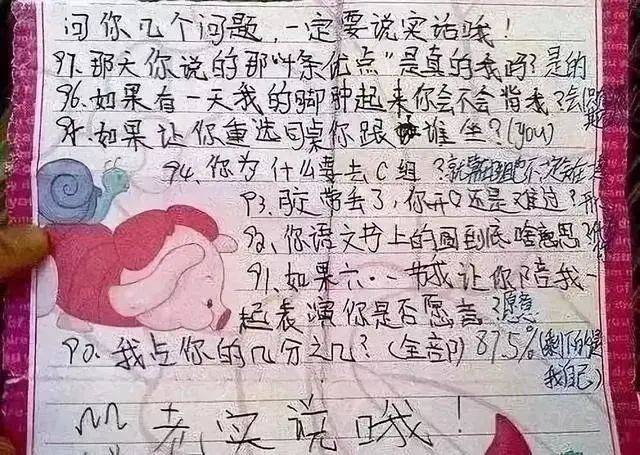 问你几个问题，一定要说实话哦！
97.那天你说的那"条优点"是真的我吗？是的
96.如果有一天我的脚肿起来你会不会背我？会
95.如果让你重选同桌你跟谁坐？(you)
94.你为什么要去C组？
93.胶带丢了，你开心还是难过？
92.你语文书上的圈到底啥意思？
91.如果六·一节我让你陪我一
起表演你是否愿意？愿意
90.我占你的几分之几？(全部) 87.5% (剩下的是
我自己)
老实说哦！